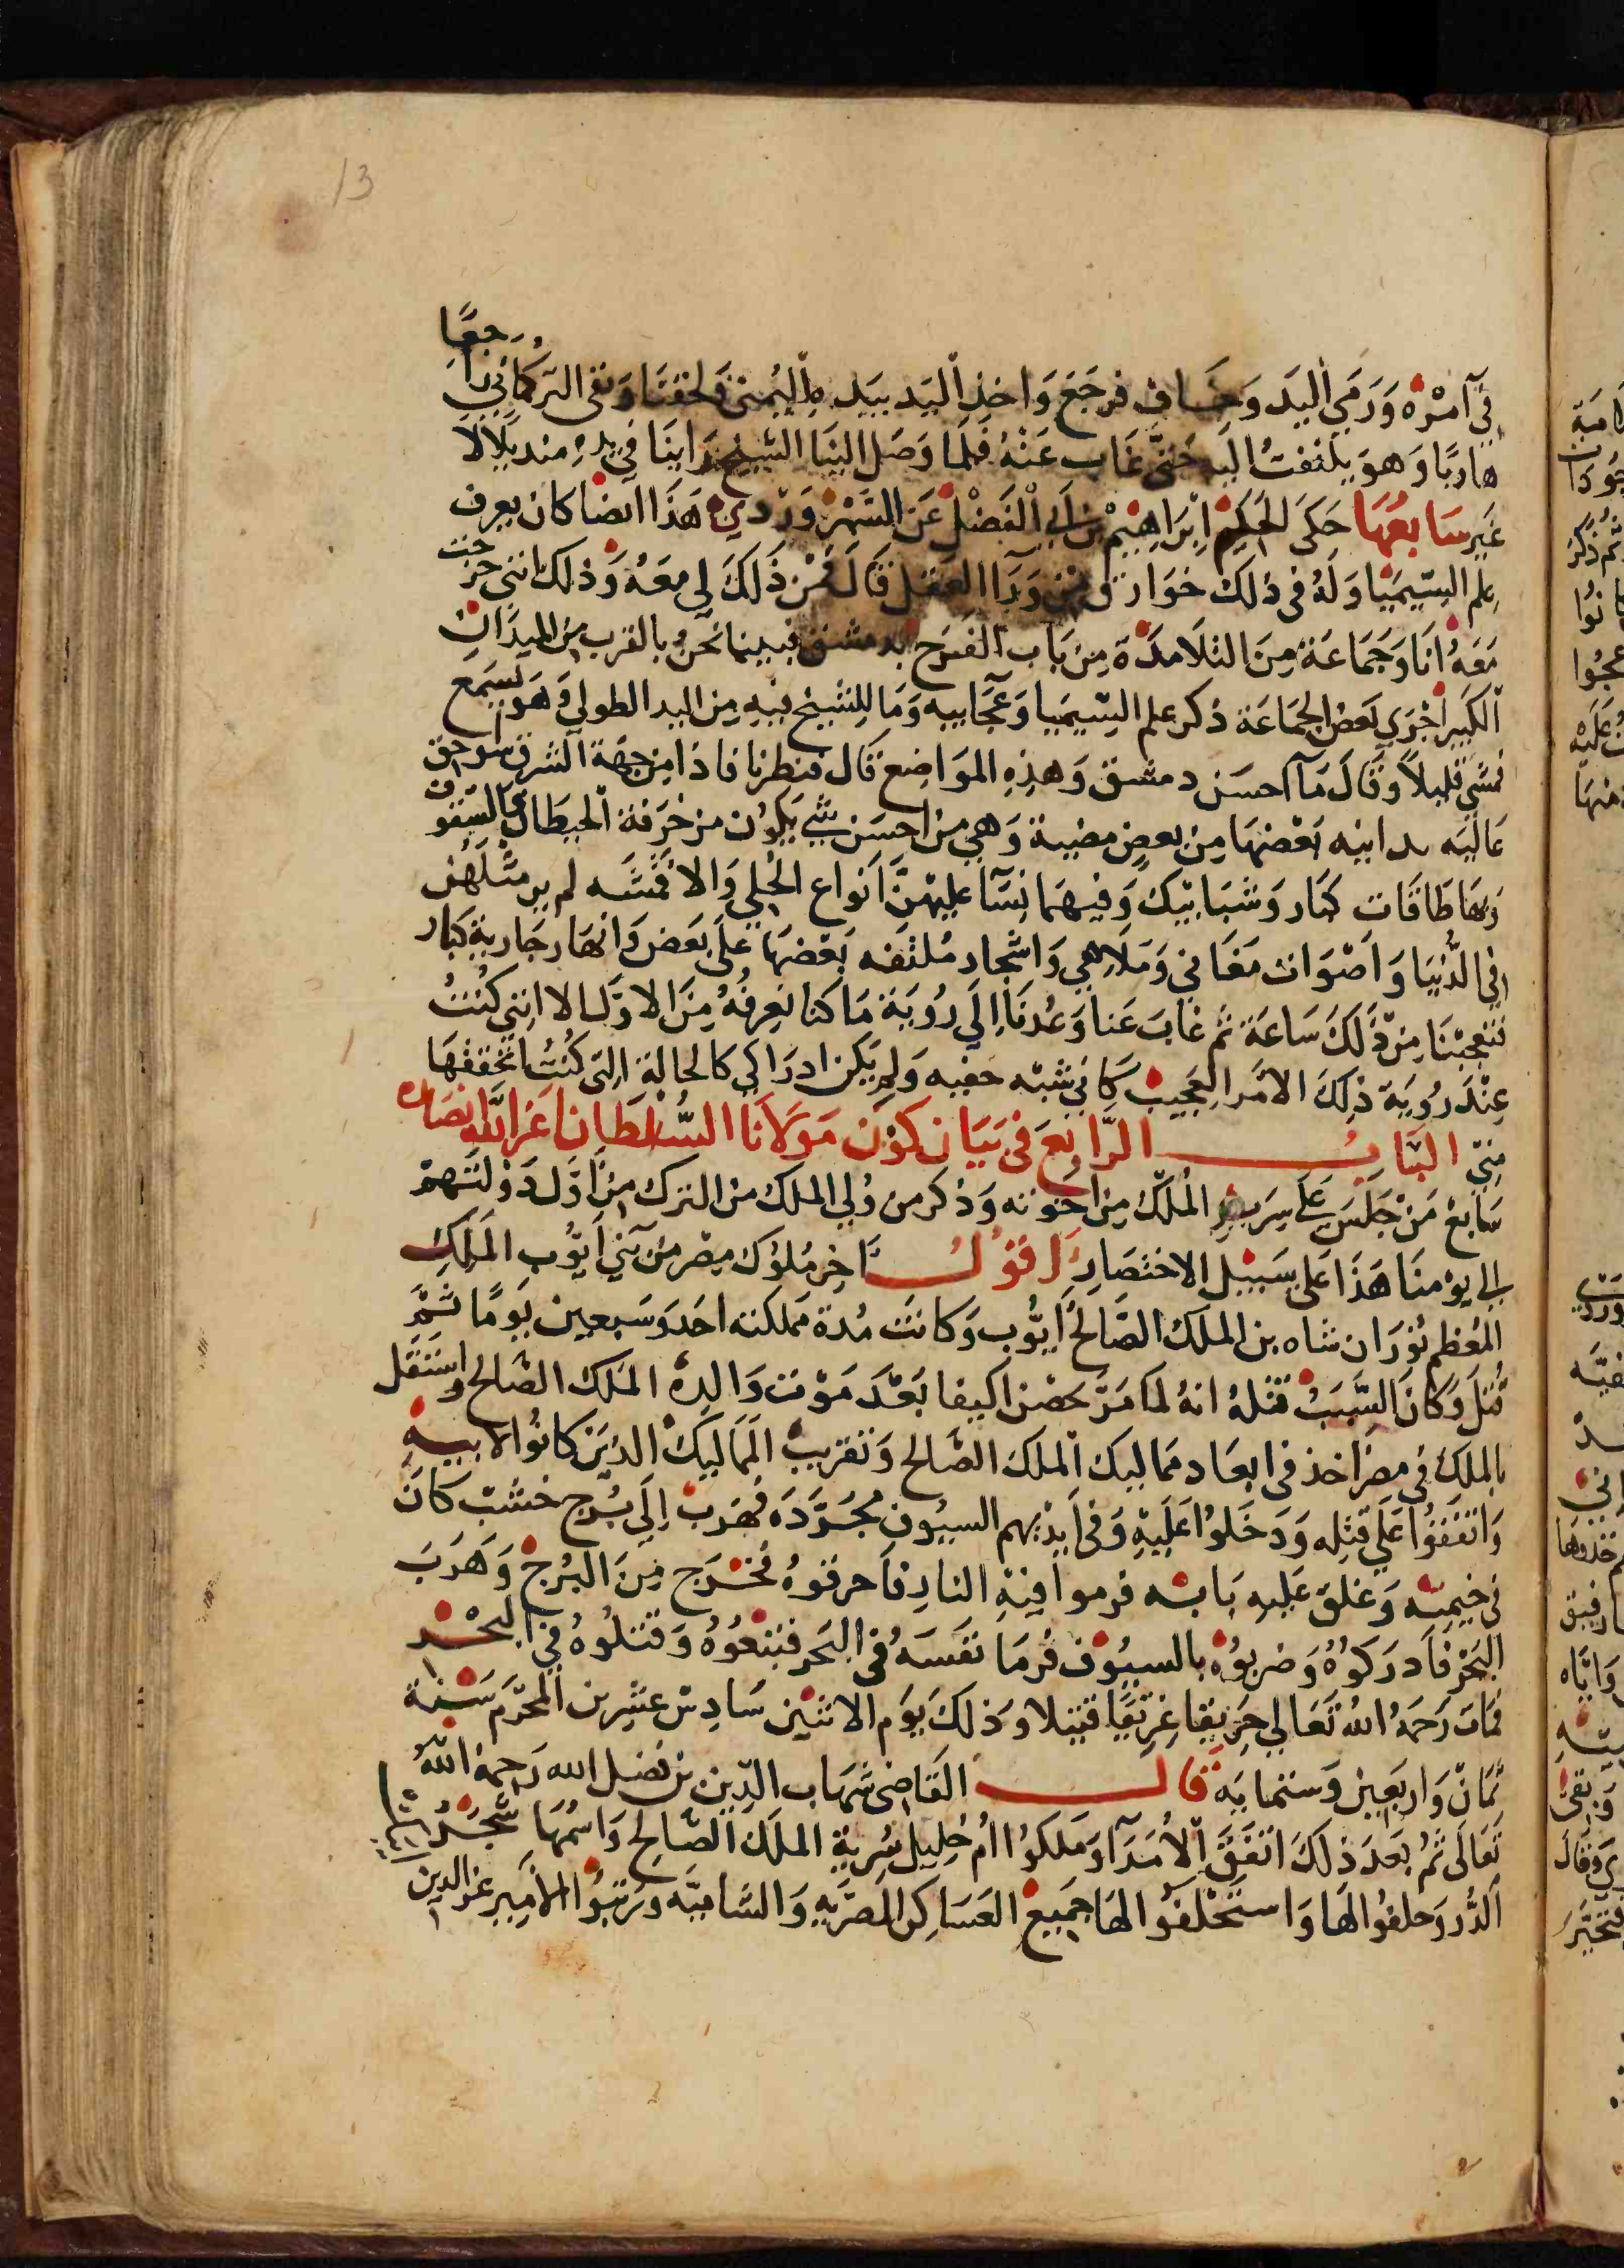 في آمره ورمي اليد وخاف فرجع واخذ اليد بيده اليمني ولحقنا وبقي التركماني راجعًا
هاربًا وهو يلتفت اليه حتى غاب عنه فلما وصل الينا الشيخ راينا في يده منديلا لا
غير سابعها حكى الحكيم ابراهيم بن ابي الفضل عن السهروردي هذا ايضا كان يعرف
علم السيميا وله في ذلك خوارق من ورا العقل قال فمن ذلك لي معه وذلك انني خرجت
معه انا وجماعة من التلامذة من باب الفرج بدمشق فبينما نحن بالقرب من الميدان
الكبير اجري بعض الجماعة ذكر علم السيميا وعجاييه وما للشيخ فيه من اليد الطولي وهو يسمع
فمشي قليلاً وقال ما احسن دمشق وهذه المواضع قال فنظرنا فاذا من جهة الشرق سواحق
عاليه بدانيه بعضها من بعض مضيية وهي من احسن شي يكون من خرفة الحيطان السقوف
وبها طاقات كبار وشبابيك وفيهما نسآ عليهن انواع الحلي والاقمشه لم ير مثلهن
في الدنيا واصوات مغاني وملاهي واشجار ملتفه بعضها على بعض وانهار جارية كبار
فتعجبنا من ذلك ساعة ثم غاب عنا وعدنا الي روية ما كنا نعرفه من الاول الا انني كنت
عند روية ذلك الامر العجيب كاني شبه خفيه ولم يكن ادراكي كالحالة التي كنت اتحققها
مني الباب الرابع في بيان كون مولانا السلطان اعز الله انصاره
سابع من جلس على سرير الملك من اخوته وذكر من ولي الملك من الترك من اول دولتهم
الى يومنا هذا على سبيل الاختصار اقول اخر ملوك مصر من بني ايوب الملك
المعظم توران شاه بن الملك الصالح ايوب وكانت مدة مملكته احد وسبعين يومًا ثم
قتل وكان السبب قتله انه لما مر حصن اكيفا بعد موت والده الملك الصالح واستقل
بالملك في مصر اخذ في ابعاد مماليك الملك الصالح وتقريب المماليك الذين كانوا لابيه
واتفقوا علي قتله ودخلوا عليه وفي ايديهم السيوف مجرده فهرب الى برج خشب كان
في خيمته وغلق عليه بابه فرموا فيه النار فاحرقوه فخرج من البرج وهرب
البحر فادركوه وضربوه بالسيوف فرما نفسه في البحر فتبعوه وقتلوه في البحر
فمات رحمه الله تعالى حريقا غريقا قتيلا وذلك يوم الاثنين سادس عشرين المحرم سنة
ثمان واربعين وستمايه قال القاضي شهاب الدين بن فضل الله رحمه الله
تعالى ثم بعد ذلك اتفق الامرآ وملكوا ام خليل سرية الملك الصالح واسمها شجر
الدر وحلفوا لها واستحلفوا لها جميع العساكر المصريه والشاميه ورتبوا الامير عز الدين